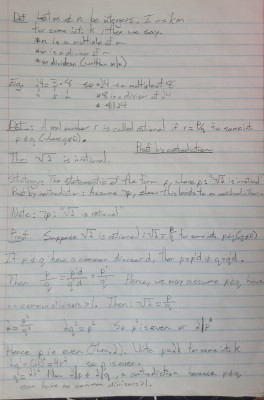 Def. Let m & n be integers. If n = km
for some int. k, then we say
* n is a multiple of m
* m is a divisor of n
* m divides n (written m|n)
Eg. 24 = 3 · 8 so * 24 is a multiple of 8
n k m * 8 is a divisor of 24
* 8|24
Defn: A real number r is called rational if r = p/q for some ints
p & q (where q≠0).
Proof by contradiction:
Thm √2 is irrational.
Strategy: The statement is of the form p, where p: √2 is irrational
Proof by contradiction: Assume ¬p, show this leads to a contradiction
Note: ¬p: √2 is rational
Proof: Suppose √2 is rational: √2 = p/q for some ints p&q (q≠0)
If p & q have a common divisor d, then p = p'd & q = q'd.
Then p/q = p'd/q'd = p'/q' Hence, we may assume p & q have
no common divisors > 1. Then: √2 = p/q
2 = p²/q² 2q² = p² So p² is even or 2|p²
Hence p is even Write p = 2k for some int k
2q² = (2k)² = 4k² so q is even.
q² = 2k² Now 2|p & 2|q, a contradiction because p & q
can have no common divisors > 1.